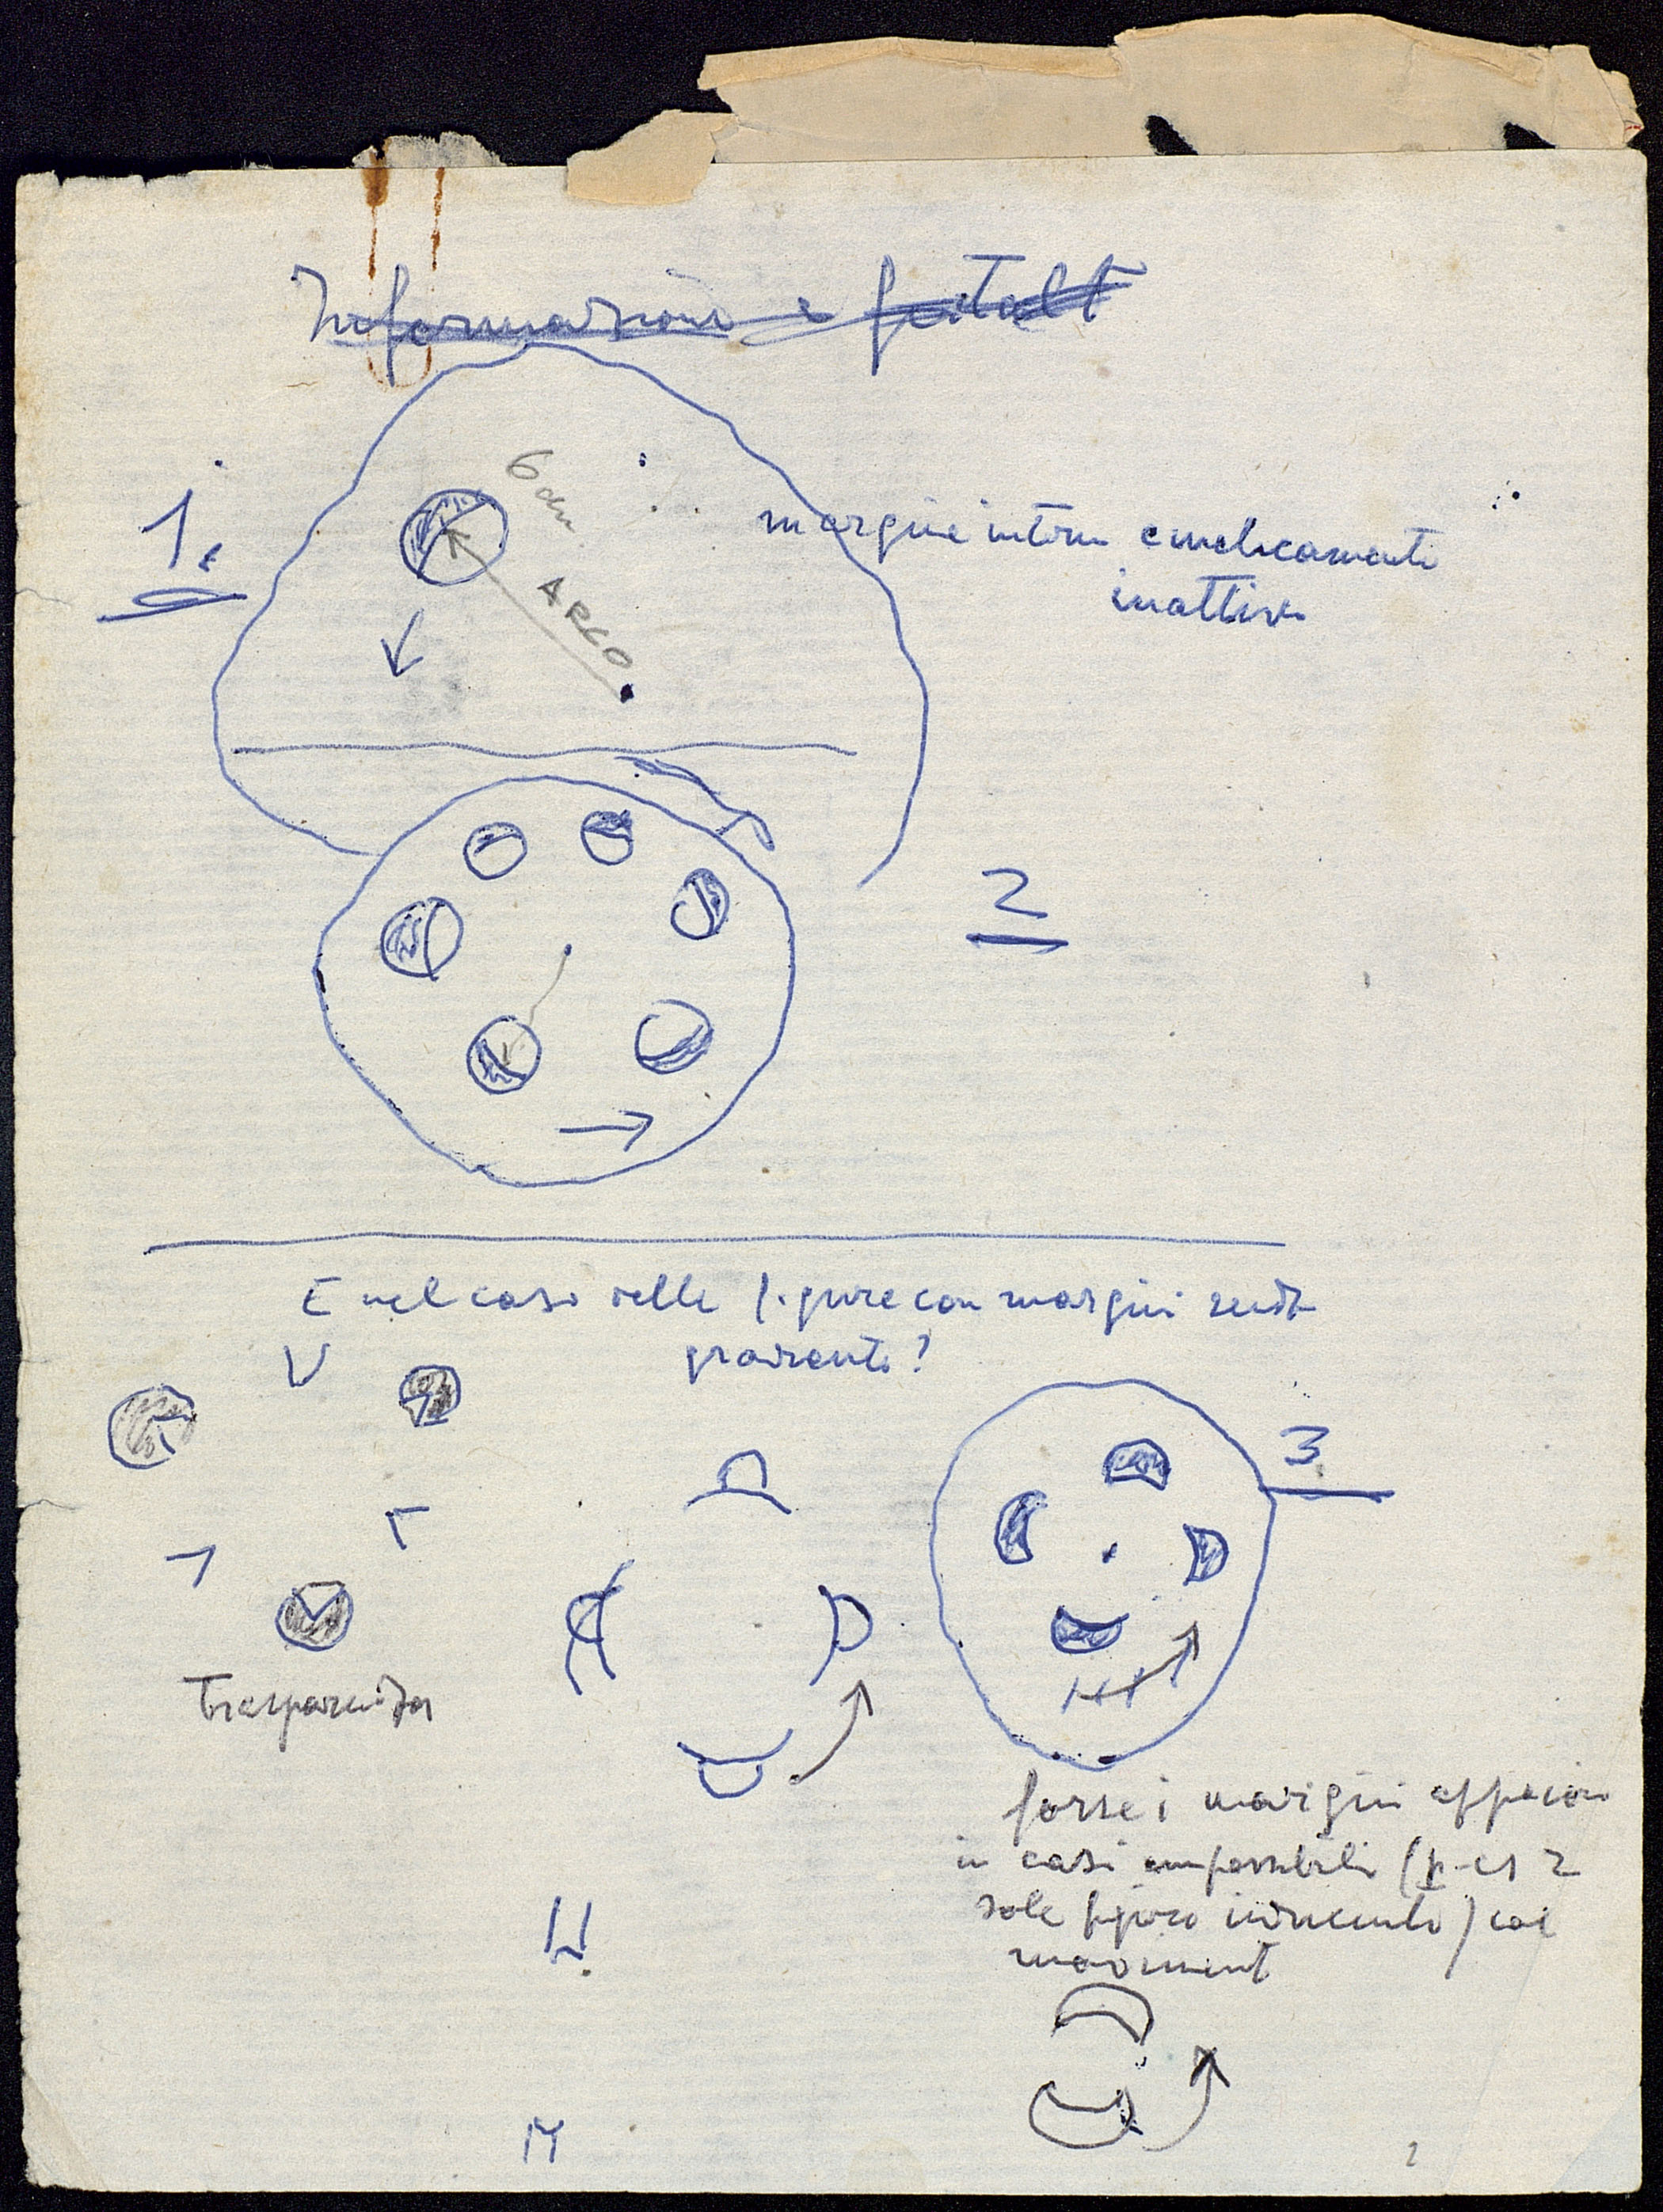 Informazione e gestalt
1.
6 cm
ARCO
margine interno cineticamente
inattivo
2
E nel caso delle figure con margini senza
gradiente?
3
Trasparenza
forse i margini appaiono
in casi impossibili (p. es 2
sole figure inducenti) col
moviment